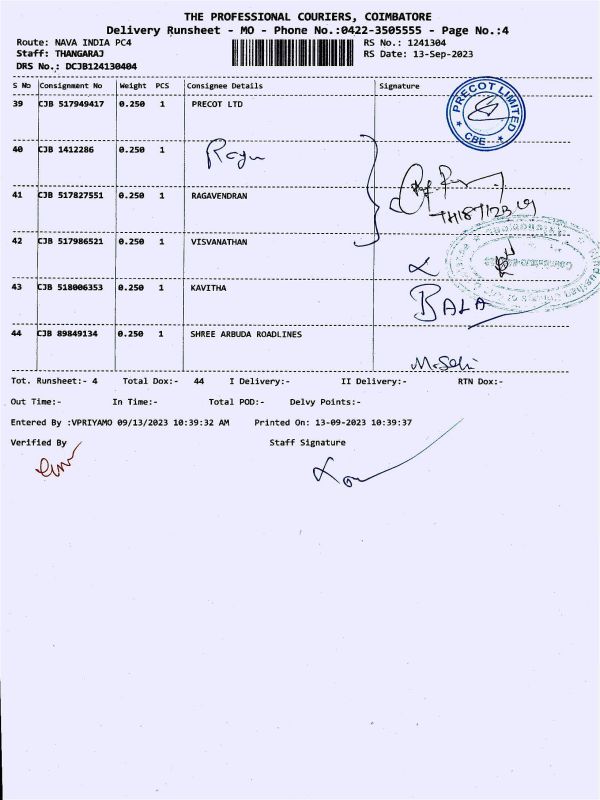 THE PROFESSIONAL COURIERS, COIMBATORE
Delivery Runsheet - MO - Phone No.:0422-3505555 - Page No.:4
Route: NAVA INDIA PC4 RS No.: 1241304
Staff: THANGARAJ RS Date: 13-Sep-2023
DRS No.: DCJB124130404
S No Consignment No Weight PCS Consignee Details Signature
39 CJB 517949417 0.250 1 PRECOT LTD
PRECOT LIMITED
CBE
40 CJB 1412286 0.250 1 Ragu
41 CJB 517827551 0.250 1 RAGAVENDRAN
42 CJB 517986521 0.250 1 VISVANATHAN
43 CJB 518006353 0.250 1 KAVITHA
BALA
44 CJB 89849134 0.250 1 SHREE ARBUDA ROADLINES
Tot. Runsheet:- 4 Total Dox:- 44 I Delivery:- II Delivery:- RTN Dox:-
Out Time:- In Time:- Total POD:- Delvy Points:-
Entered By :VPRIYAMO 09/13/2023 10:39:32 AM Printed On: 13-09-2023 10:39:37
Verified By Staff Signature